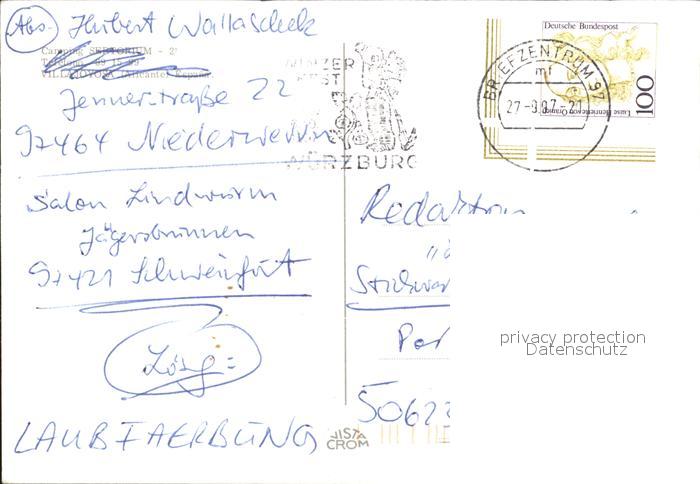 Abs. Hubert Wallaschek
Camping SERTORIUM - 2ª
VILLAJOYOSA (Alicante) España
Jennerstraße 22
97464 Niederwerrn
Salon Lindwurm
Jägersbrunnen
97421 Schweinfurt
Lösg:=
LAUBFAERBUNG
WINZER
FEST
WÜRZBURG
Deutsche Bundespost
100
BRIEFZENTRUM 97
mf
27-8.97-21
Redaktion
Stichwor
50622
VISTA
CROM
privacy protection
Datenschutz